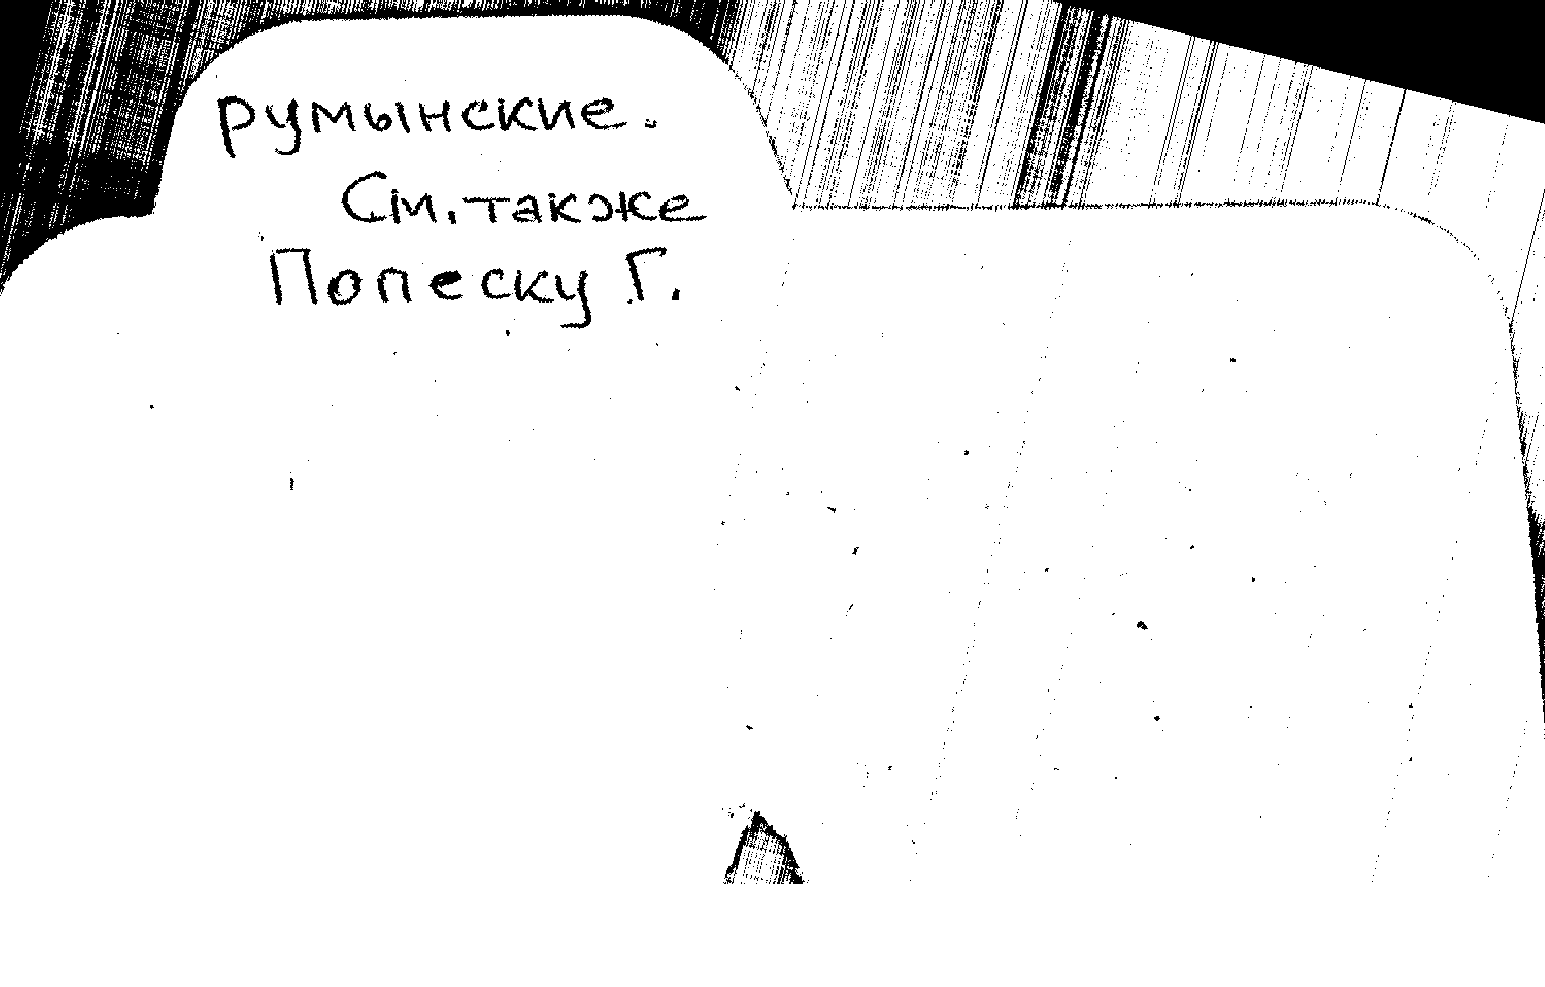 румынские.
См. также
Попеску Г.